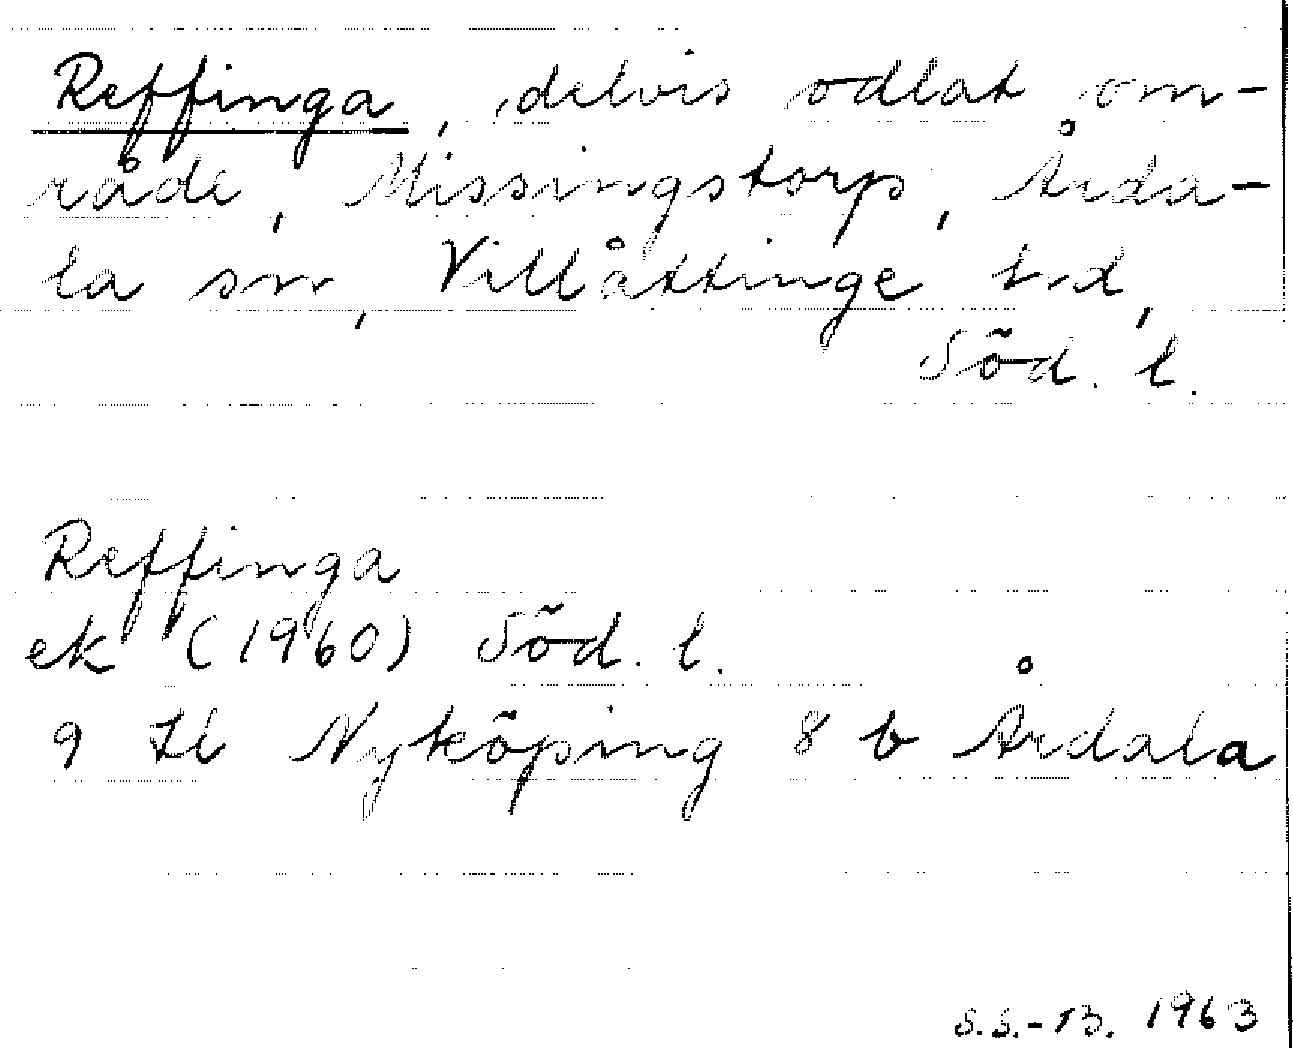 Reffinga, delvis odlat om-
råde, Missingstorp, Årda-
la sn, Villåttinge hd,
Söd. l.
Reffinga
ek (1960) Söd. l.
9 H Nyköping 8 b Årdala
S.S.-B. 1963